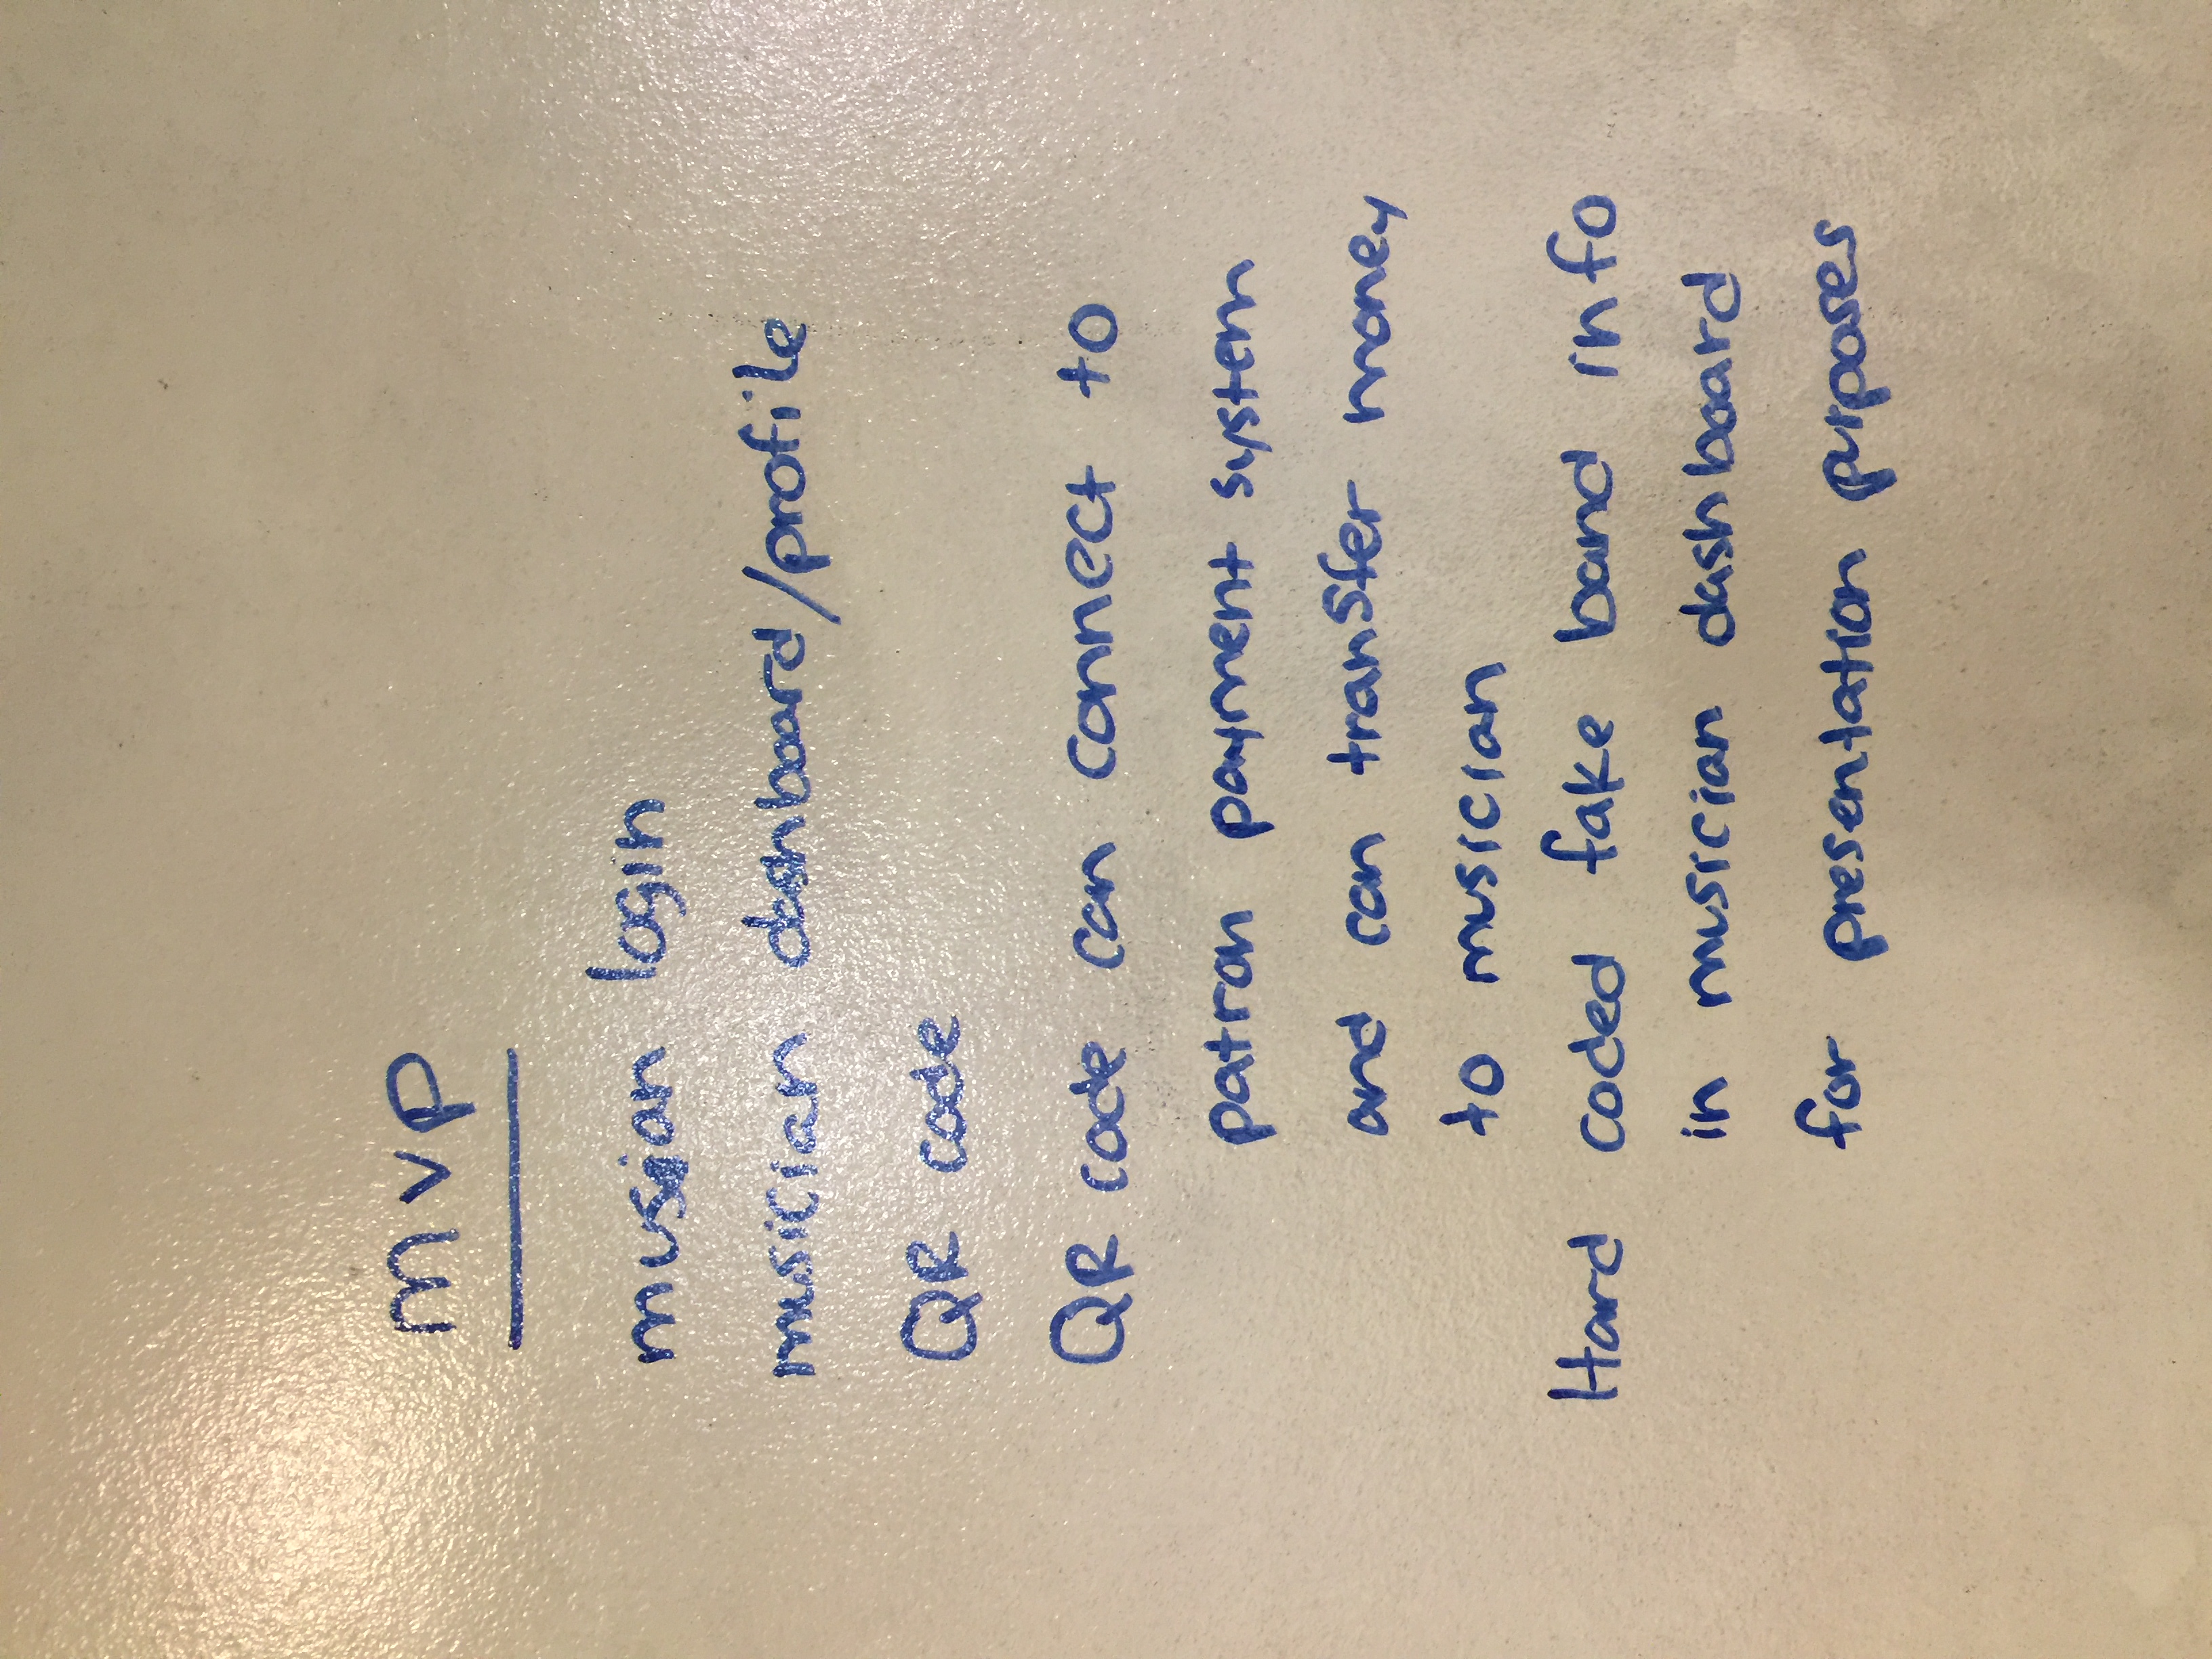 mvp
musian login
musician dashboard/profile
QR code
QR code can connect to
patron payment system
and can transfer money
to musician
Hard coded fake band info
in musician dashboard
for presentation purposes